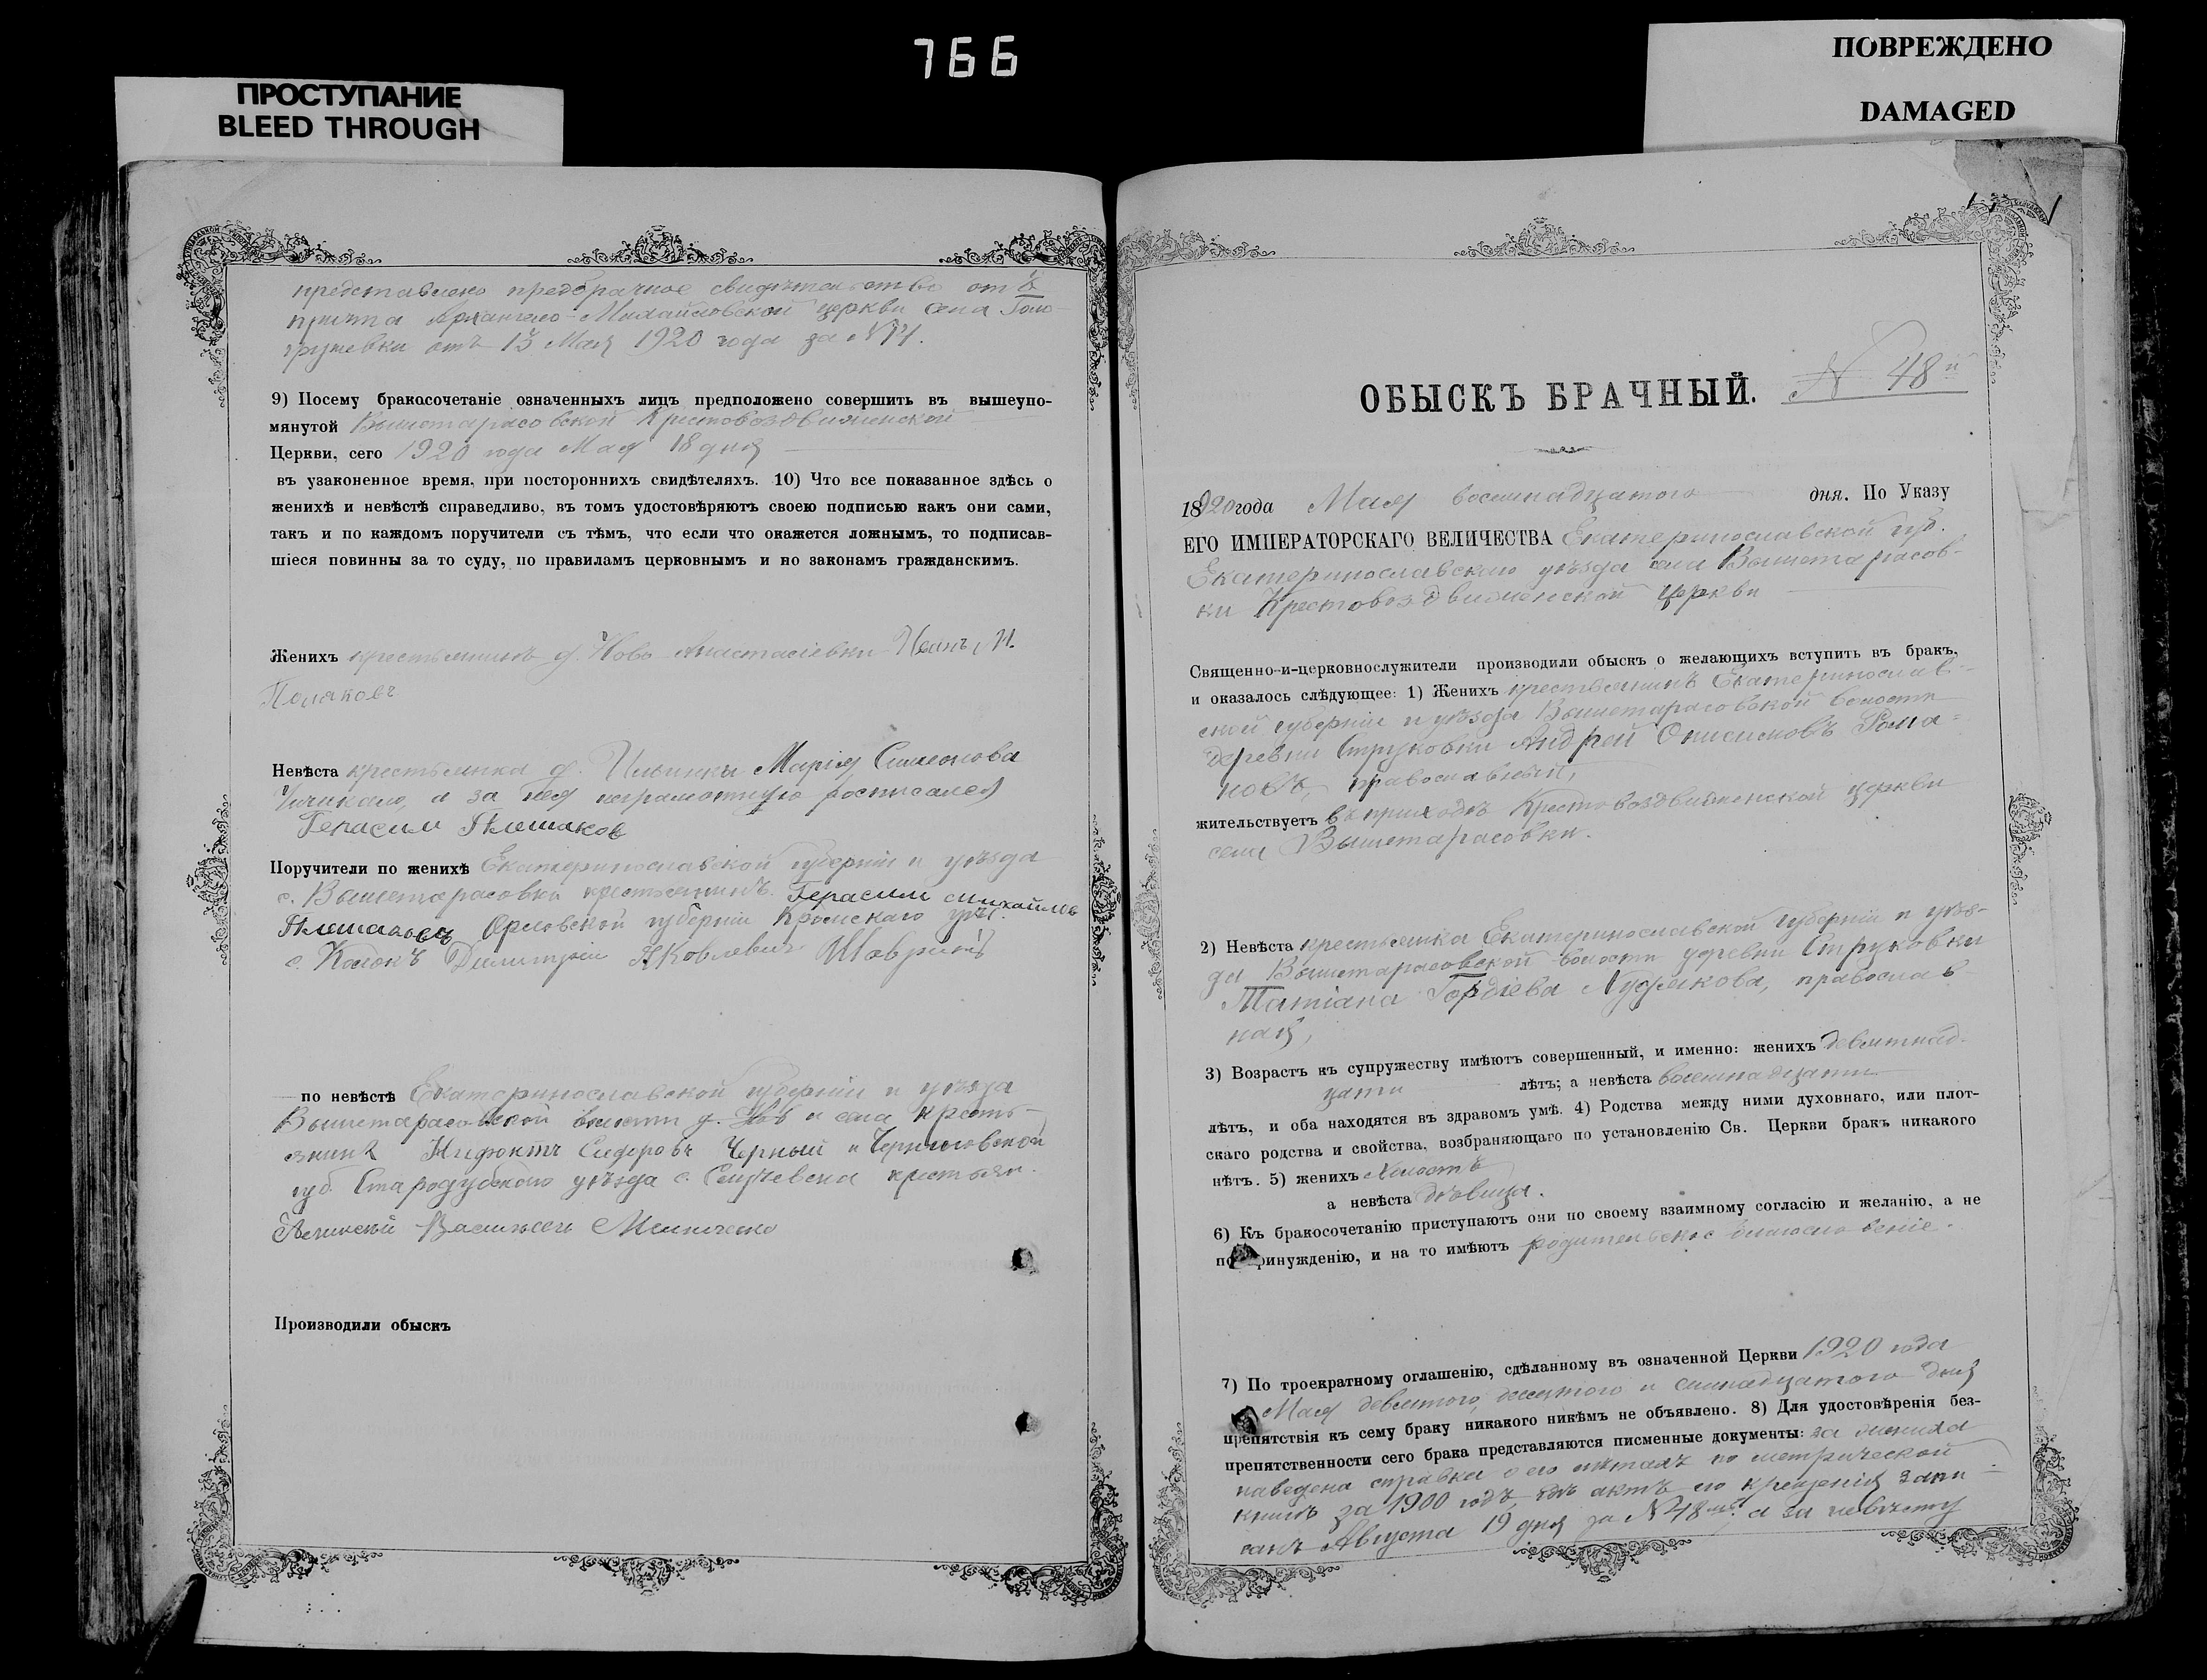 766
ПРОСТУПАНИЕ
BLEED THROUGH
ПОВРЕЖДЕНО
DAMAGED
представлено предбрачное свидѣтельство отъ
причта Архангело-Михайловской церкви села
отъ 13 Мая 1920 года за №
9) Посему бракосочетаніе означенныхъ лицъ предположено совершить въ вышеупо-
мянутой Вышетарасовской Крестовоздвиженской
Церкви, сего 1920 года Мая 18 дня
въ узаконенное время, при постороннихъ свидѣтеляхъ. 10) Что все показанное здѣсь о
женихѣ и невѣстѣ справедливо, въ томъ удостовѣряютъ своею подписью какъ они сами,
такъ и по каждомъ поручители съ тѣмъ, что если что окажется ложнымъ, то подписав-
шіеся повинны за то суду, по правиламъ церковнымъ и но законамъ гражданскимъ.
Женихъ крестьянинъ д. Ново Анастасіевки Иванъ
Поляковъ
Невѣста крестьянка д. Ильинки Марія Симеонова
а за нея неграмотную росписался
Герасим
Поручители по женихѣ Екатеринославской губерніи и уѣзда
с. Вышетарасовки крестьянинъ Герасим Михайлов
Орловской губерніи Кромскаго уѣз.
с. Димитрій Яковлевичъ
по невѣстѣ Екатеринославской губерніи и уѣзда
Вышетарасовской волости д. кресть-
янинъ Сидоровъ Черный и Черниговской
губ. Стародубского уѣзда с. крестьян.
Васильевъ
Производили обыскъ
ОБЫСКЪ БРАЧНЫЙ. № 48й
1920 года Мая восемнадцатого дня. По Указу
ЕГО ИМПЕРАТОРСКАГО ВЕЛИЧЕСТВА Екатеринославской губ.
Екатеринославскаго уѣзда села Вышетарасов-
ки Крестовоздвиженской церкви
Священно-и-церковнослужители производили обыскъ о желающихъ вступить въ бракъ,
и оказалось слѣдующее: 1) Женихъ крестьянинъ Екатеринослав-
ской губерніи и уѣзда Вышетарасовской волости
деревни Струковки Андрей Онисимовъ Рома=
новъ, православный,
жительствуетъ въ приходѣ Крестовоздвиженской церкви
села Вышетарасовки.
2) Невѣста крестьянка Екатеринославской губерніи и уѣз-
да Вышетарасовской волости деревни Струковки
Татіана Гордѣева православ
ная,
3) Возрастъ къ супружеству имѣютъ совершенный, и именно: женихъ девятнад-
цати лѣтъ; а невѣста восемнадцати
лѣтъ, и оба находятся въ здравомъ умѣ. 4) Родства между ними духовнаго, или плот-
скаго родства и свойства, возбраняющаго по установленію Св. Церкви бракъ никакого
нѣтъ. 5) женихъ холостъ
а невѣста дѣвица.
6) Къ бракосочетанію приступаютъ они по своему взаимному согласію и желанію, а не
по принужденію, и на то имѣютъ родительское благословеніе.
7) По троекратному оглашенію, сдѣланному въ означенной Церкви 1920 года
Мая девятого, десятого и семнадцатого дня
препятствія къ сему браку никакого никѣмъ не объявлено. 8) Для удостовѣренія без-
препятственности сего брака представляются писменные документы: за жениха
наведена справка о его лѣтахъ по метрической
книгѣ за 1900 годъ, гдѣ актъ его крещенія запи-
санъ Августа 19 дня за №48 а за невѣсту